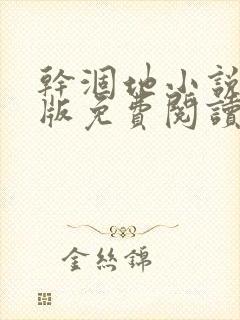 幹涸地小說
版免費閱讀
金絲錦